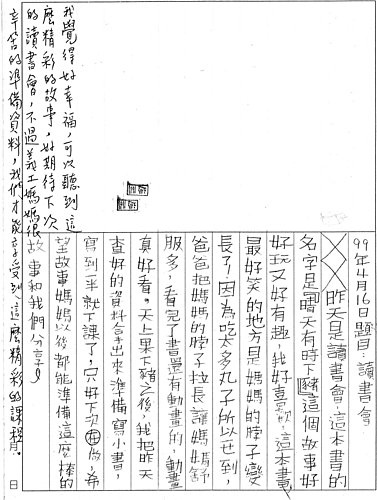 99年4月16日題目:讀書會
昨天是讀書會,這本書的
名字是晴天有時下豬,這個故事好
好玩又好有趣,我好喜歡這本書,
最好笑的地方是媽媽的脖子變
長了,因為吃太多丸子所以到,
爸爸把媽媽的脖子拉長讓媽媽舒
服多,看完了書還有動畫的,動畫
真好看。天上果下豬之後,我把昨天
查好的資料拿出來準備寫小書,
寫到一半就下課了,只好下次在做,希
望故事媽媽以後都能準備這麼棒的
故事和我們分享。
我覺得好幸福,可以聽到這
麼精彩的故事,好期待下次
的讀書會,不過義工媽媽很
辛苦的準備資料,我們才能享受到這麼精彩的課程。
日